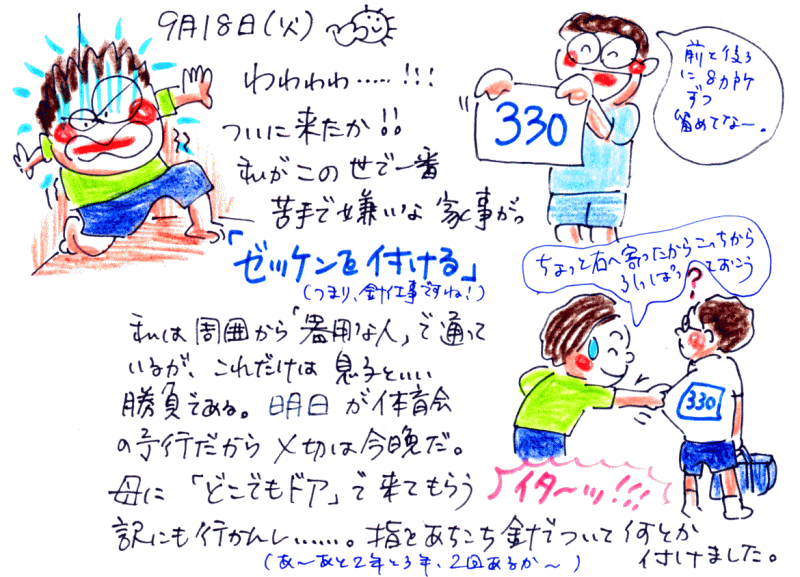 9月18日(火)
わわわわ……!!!
ついに来たか!!
私がこの世で一番
苦手で嫌いな家事がっ
「ゼッケンを付ける」
(つまり、針仕事ですね!)
330
前と後ろ
に8カ所
ずつ
留めてなー。
ちょっと右へ寄ったからこっちから
引っぱっておこう
?
330
イターッ!!!
私は周囲から「器用な人」で通って
いるが、これだけは息子といい
勝負である。明日が体育会
の予行だから〆切は今晩だ。
母に「どこでもドア」で来てもらう
訳にも行かんし……。指をあちこち針でついて何とか
付けました。
(あ〜あと2年と3年、2回あるか〜)